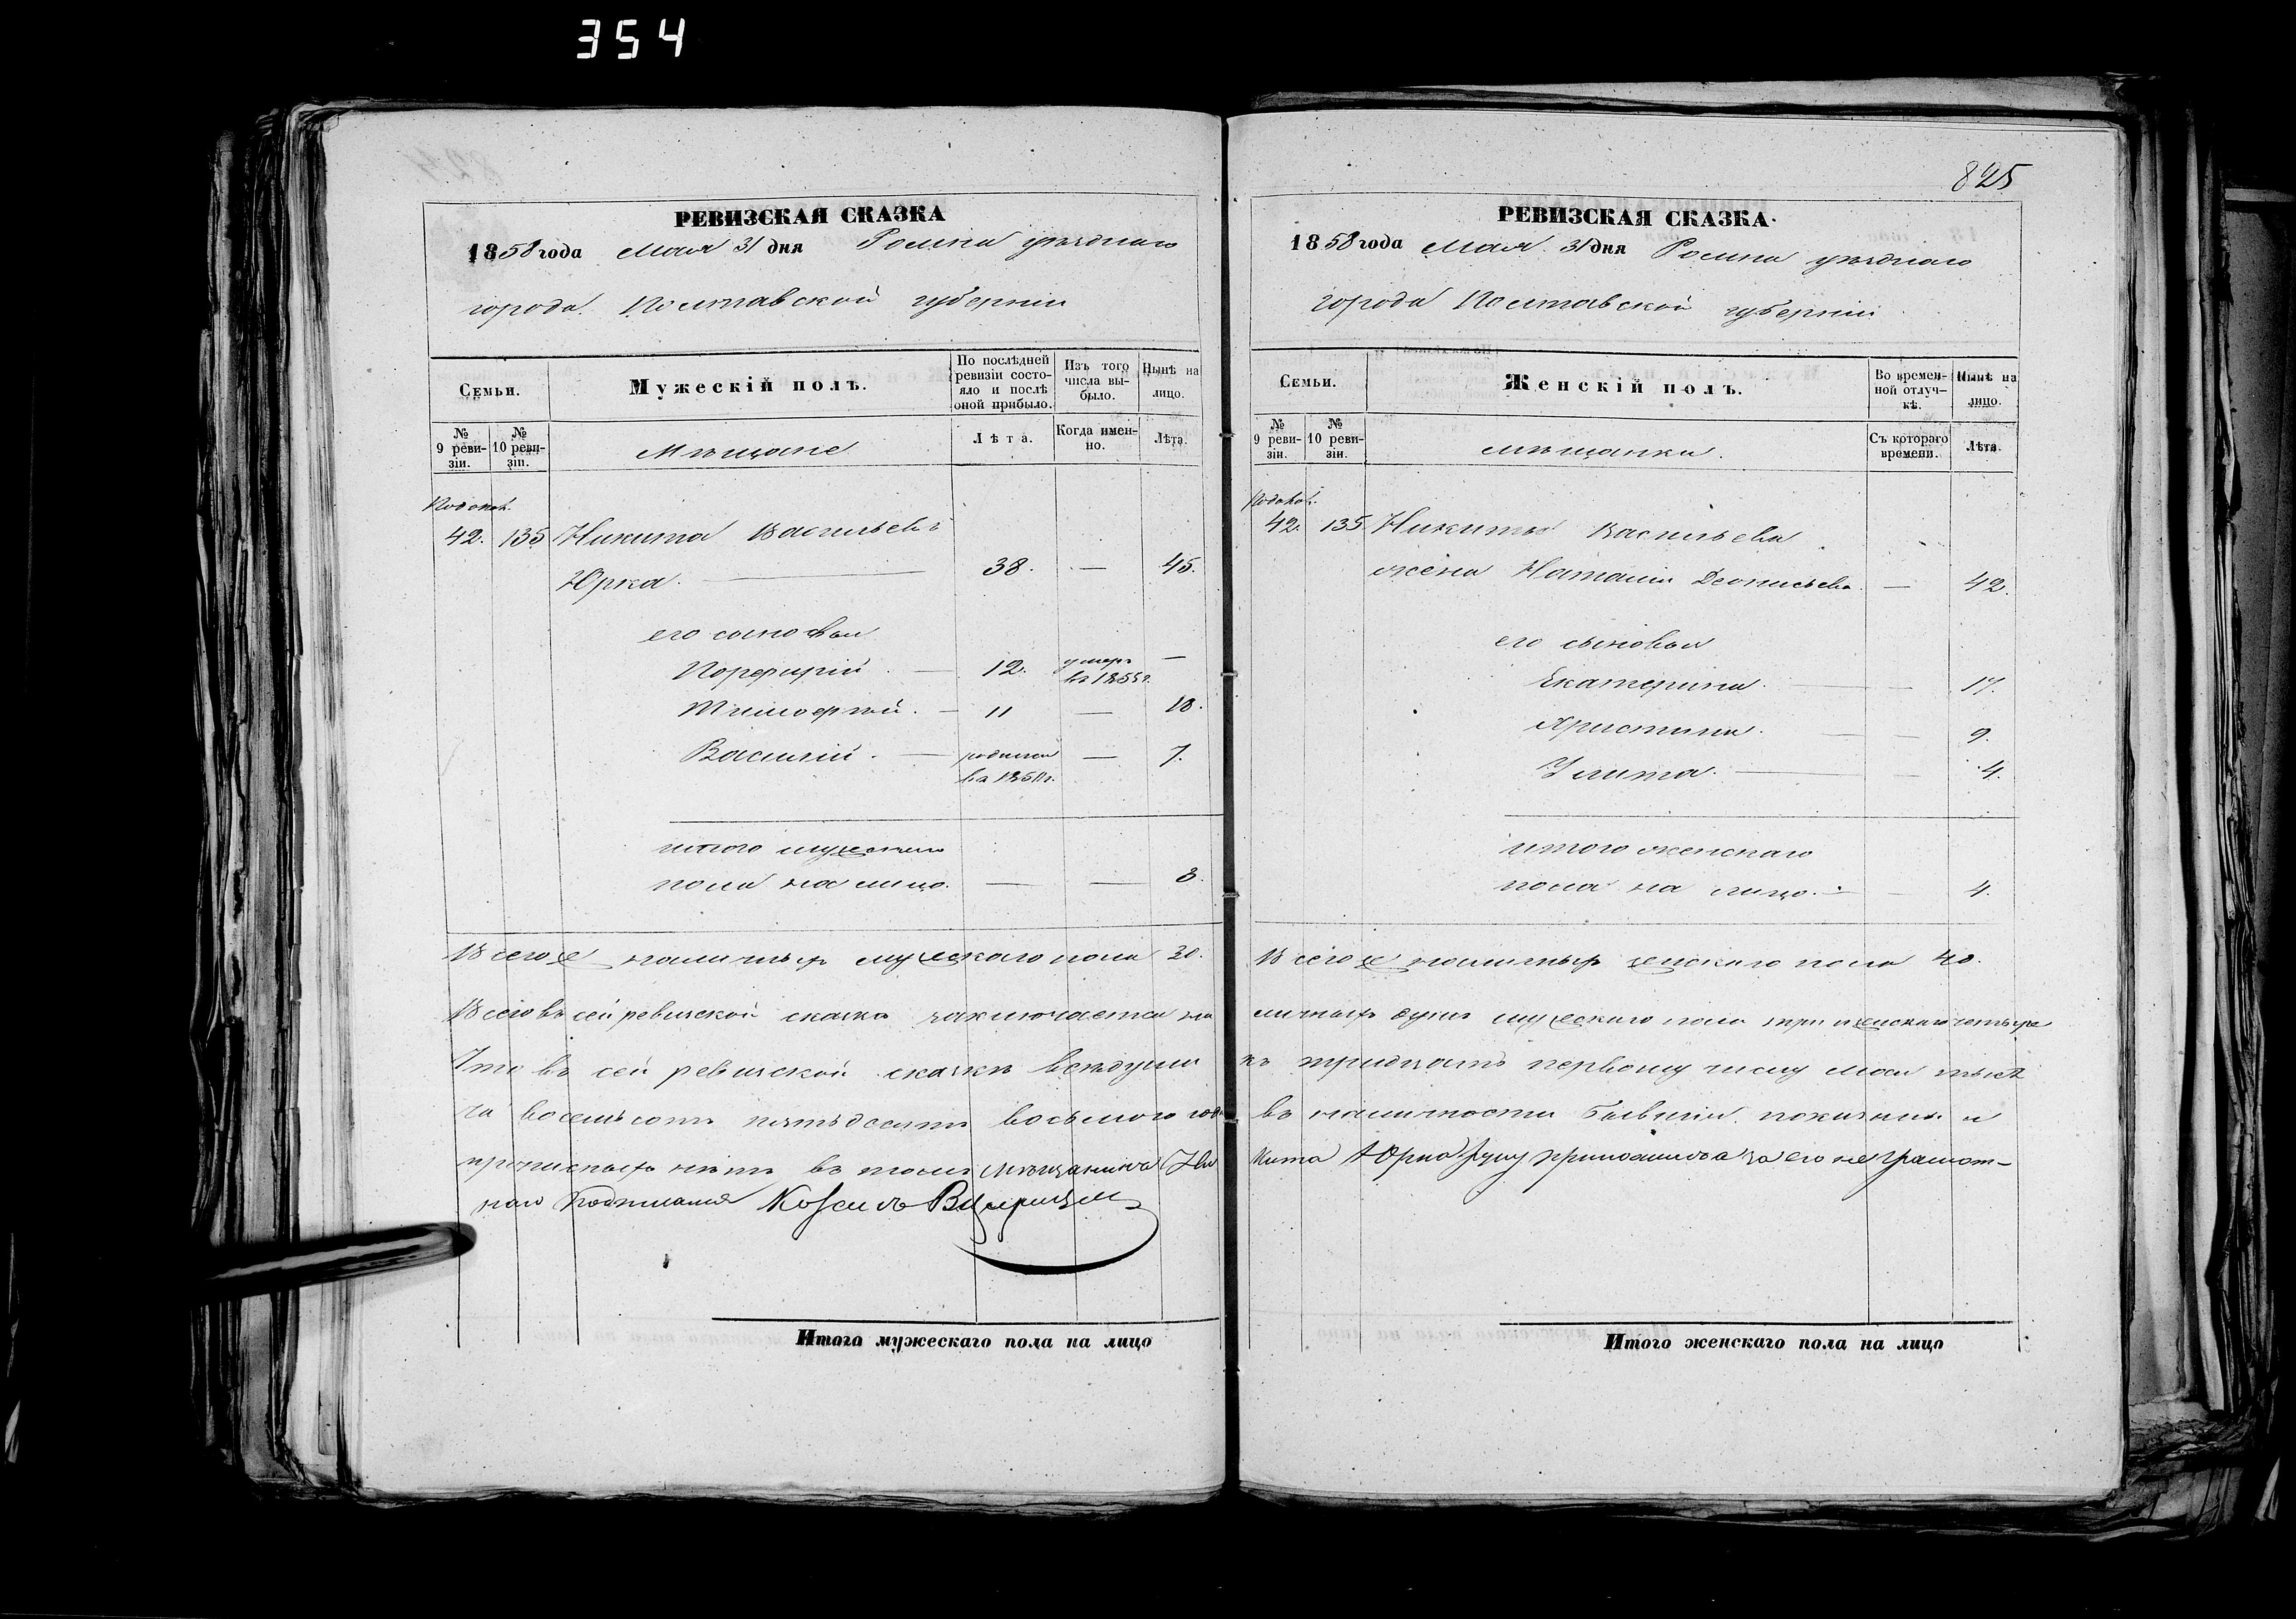 354
РЕВИЗСКАЯ СКАЗКА
1858 года Мая 31 дня Ромна уѣзднаго
города Полтавской губерніи
Семьи.
Мужескій полъ.
По послѣдней ревизіи состояло и послѣ оной прибыло.
Изъ того числа выбыло.
Нынѣ на лицо.
№ 9 ревизіи.
№ 10 ревизіи.
Мѣщане
Лѣта.
Когда именно.
Лѣта.
42. 135 Никита Васильевъ
Юрка. 38. — 45.
его сыновья
Порфирій. — 12. умеръ въ 1855 г. —
Тимофѣй. — 11 — 18.
Василій. — родился въ 1851 г. — 7.
итого мужескаго
пола на лицо. — — 3.
Всего же наличныхъ мужескаго пола
Всего въ сей ревизской сказкѣ заключается на
Что въ сей ревизской сказкѣ всѣ души
ча восемьсотъ пятьдесятъ восьмого года
прописныхъ нѣтъ въ томъ мѣщанина Ни
наго подписался
Итого мужескаго пола на лицо
825
РЕВИЗСКАЯ СКАЗКА.
1858 года Мая 31 дня Ромна уѣзднаго
города Полтавской губерніи
Семьи.
Женскій полъ.
Во временной отлучкѣ.
Нынѣ на лицо.
№ 9 ревизіи.
№ 10 ревизіи.
мѣщанки.
Съ котораго времени.
Лѣта.
42. 135 Никиты Васильева
жена Наталія — 42.
его
Екатерина. — — 17.
Христина. — — 9.
Улита. — 4.
итого женскаго
пола на лицо. — — 4.
Всего же наличныхъ женскаго пола
личныхъ душъ мужескаго пола три женскаго четыре
къ тридцать первому числу мая тыся
въ наличности бывшіи показаны и
кита Юрка руку приложилъ а за его неграмот-
Итого женскаго пола на лицо